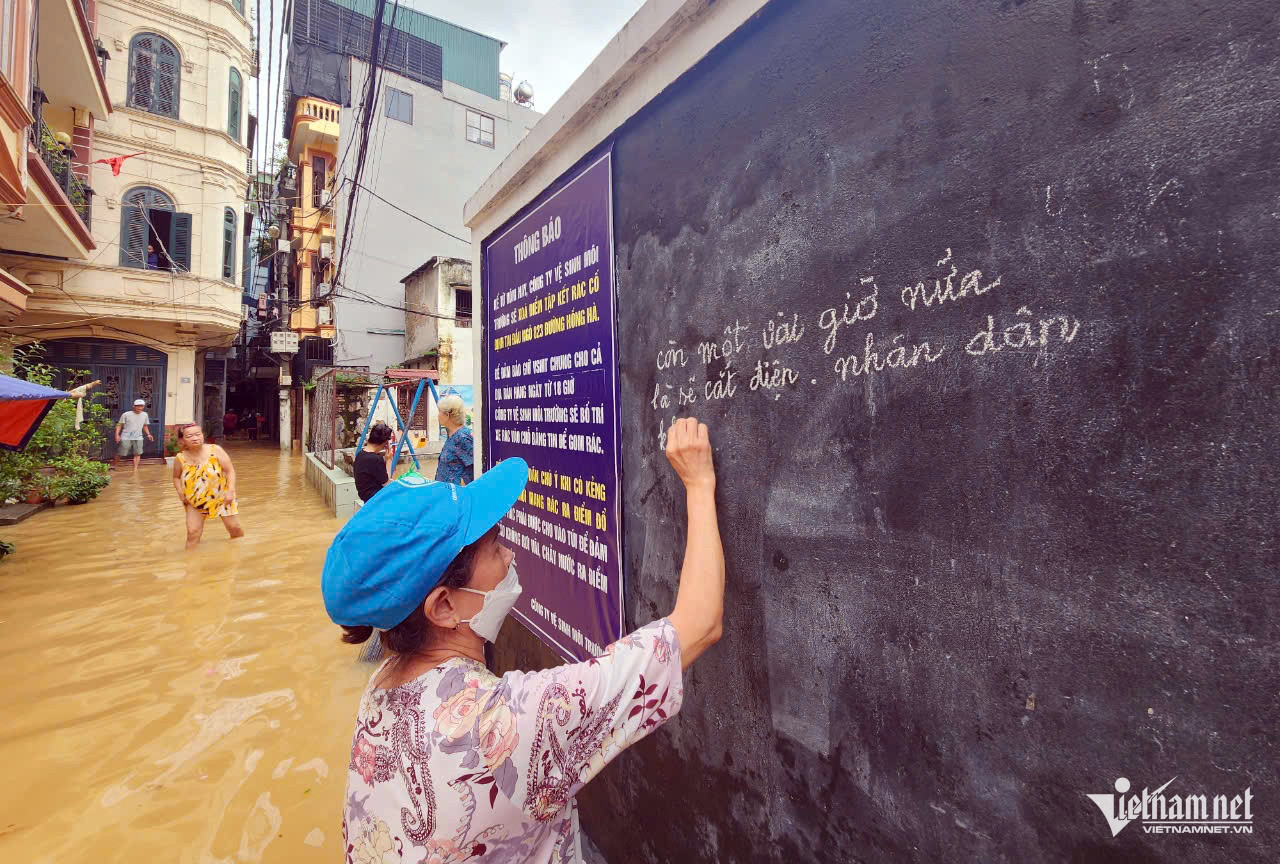 THÔNG BÁO
KỂ TỪ HÔM NAY, CÔNG TY VỆ SINH MÔI
TRƯỜNG SẼ XOÁ ĐIỂM TẬP KẾT RÁC CỐ
ĐỊNH TẠI ĐẦU NGÕ 823 ĐƯỜNG HỒNG HÀ.
ĐỂ ĐẢM BẢO GIỮ VSMT CHUNG CHO CẢ
ĐỊA BÀN HÀNG NGÀY TỪ 18 GIỜ
CÔNG TY VỆ SINH MÔI TRƯỜNG SẼ BỐ TRÍ
XE RÁC VÀO CHỖ BẢNG TIN ĐỂ GOM RÁC.
CHÚ Ý KHI CÓ KẺNG
MANG RÁC RA ĐIỂM ĐỔ
PHẢI ĐƯỢC CHO VÀO TÚI ĐỂ ĐẢM
KHÔNG RƠI VÃI, CHẢY NƯỚC RA ĐIỂM
CÔNG TY VỆ SINH MÔI TRƯỜNG
còn một vài giờ nữa
là sẽ cắt điện. nhân dân
vietnamnet
VIETNAMNET.VN